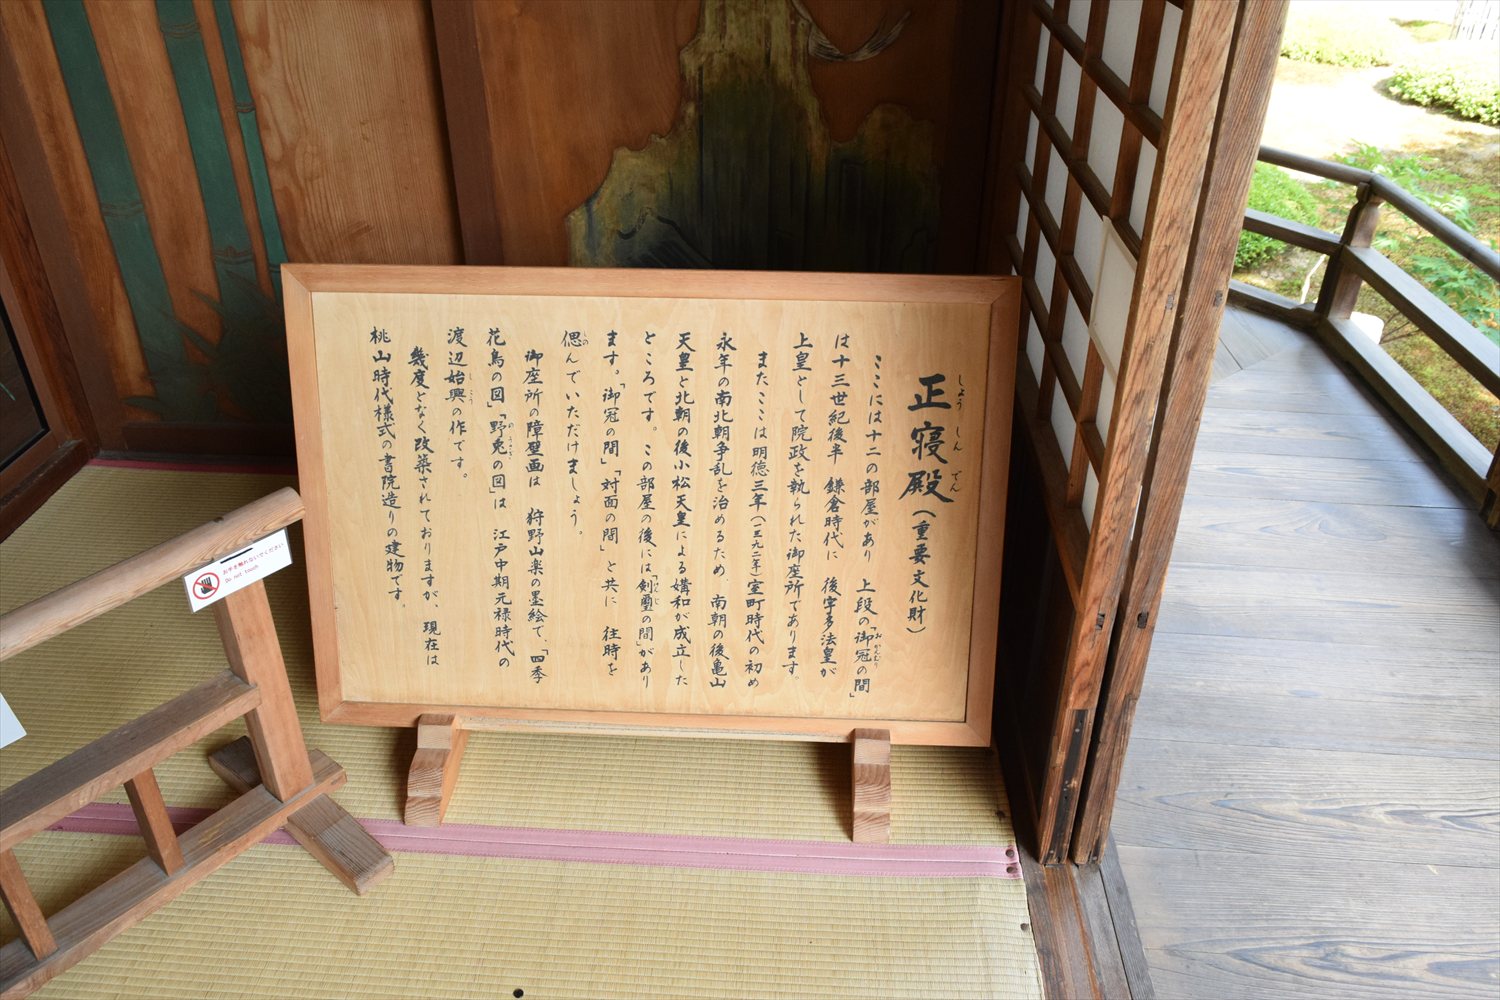 正寝殿（重要文化財）
しょう しん でん
ここには十二の部屋があり 上段の「御冠の間」
み かんむり
は十三世紀後半 鎌倉時代に 後宇多法皇が
上皇として院政を執られた御座所であります。
またここは明徳三年（一三九二年）室町時代の初め
永年の南北朝争乱を治めるため 南朝の後亀山
天皇と北朝の後小松天皇による媾和が成立した
ところです。この部屋の後には「剣璽の間」があり
けんじ
ます。「御冠の間」「対面の間」と共に 往時を
偲んでいただけましょう。
しの
御座所の障壁画は 狩野山楽の墨絵で、「四季
花鳥の図」「野兎の図」は 江戸中期元禄時代の
のうさぎ
渡辺始興の作です。
しこう
幾度となく改築されておりますが、 現在は
桃山時代様式の書院造りの建物です。
お手を触れないでください
Do not touch